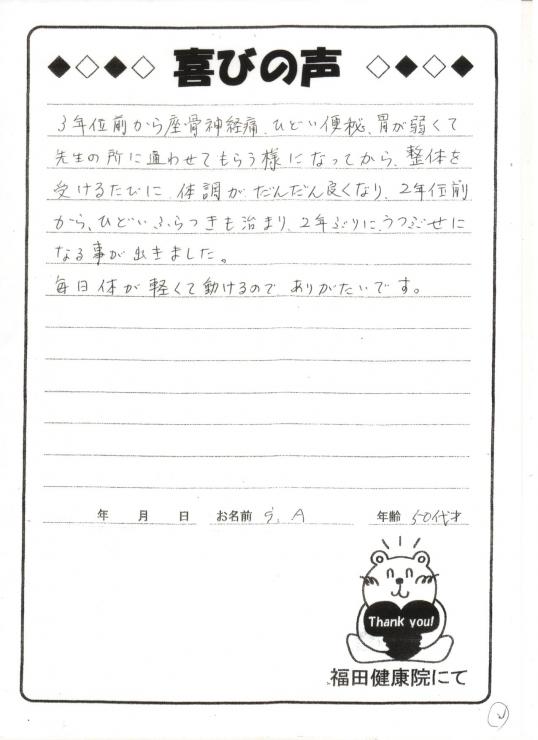 ◆◇◆◇ 喜びの声 ◇◆◇◆
3年位前から座骨神経痛、ひどい便秘、胃が弱くて
先生の所に通わせてもらう様になってから、整体を
受けるたびに、体調が、だんだん良くなり、2年位前
から、ひどいふらつきも治まり、2年ぶりに、うつぶせに
なる事が出きました。
毎日体が軽くて動けるので ありがたいです。
年 月 日 お名前 S. A 年齢 50代才
Thank you!
福田健康院にて